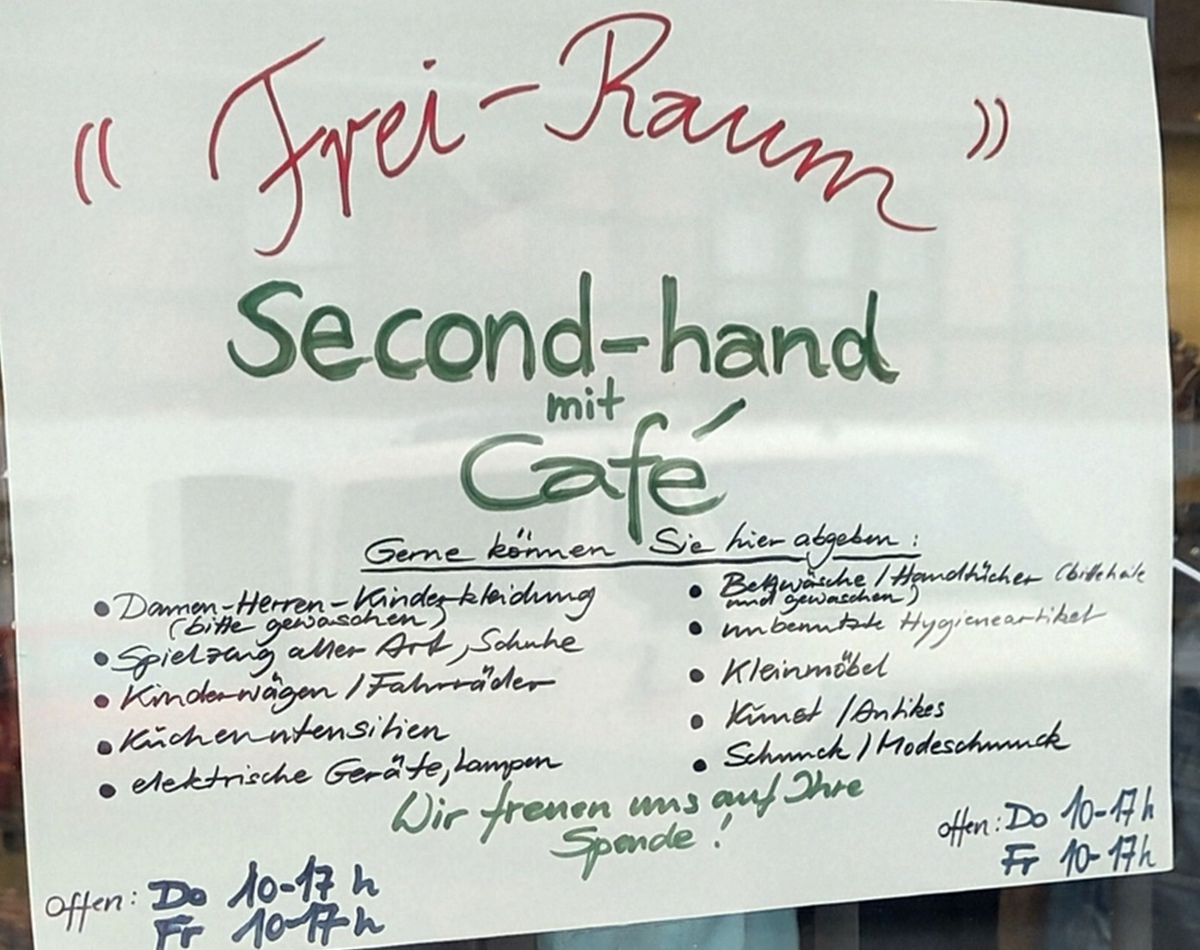 " Frei-Raum "
Second-hand
mit
Café
Gerne können Sie hier abgeben:
• Damen-Herren-Kinderkleidung
(bitte gewaschen)
• Spielzeug aller Art, Schuhe
• Kinderwägen / Fahrräder
• Küchenutensilien
• elektrische Geräte, Lampen
• Bettwäsche / Handtücher (bitte heile
und gewaschen)
• unbenutzte Hygieneartikel
• Kleinmöbel
• Kunst / Antikes
• Schmuck / Modeschmuck
Wir freuen uns auf Ihre
Spende!
offen: Do 10-17 h
Fr 10-17 h
offen: Do 10-17 h
Fr 10-17 h